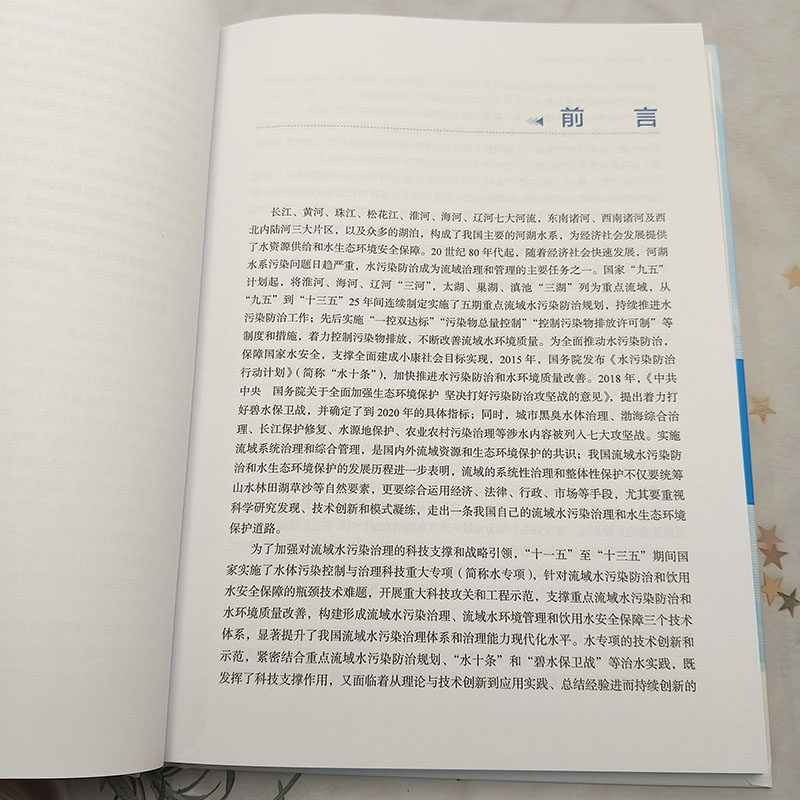 前 言
长江、黄河、珠江、松花江、淮河、海河、辽河七大河流，东南诸河、西南诸河及西
北内陆河三大片区，以及众多的湖泊，构成了我国主要的河湖水系，为经济社会发展提供
了水资源供给和水生态环境安全保障。20 世纪 80 年代起，随着经济社会快速发展，河湖
水系污染问题日趋严重，水污染防治成为流域治理和管理的主要任务之一。国家“九五”
计划起，将淮河、海河、辽河“三河”，太湖、巢湖、滇池“三湖”列为重点流域，从
“九五”到“十三五”25 年间连续制定实施了五期重点流域水污染防治规划，持续推进水
污染防治工作；先后实施“一控双达标”“污染物总量控制”“控制污染物排放许可制”等
制度和措施，着力控制污染物排放，不断改善流域水环境质量。为全面推动水污染防治，
保障国家水安全，支撑全面建成小康社会目标实现，2015 年，国务院发布《水污染防治
行动计划》（简称“水十条”），加快推进水污染防治和水环境质量改善。2018 年，《中共
中央 国务院关于全面加强生态环境保护 坚决打好污染防治攻坚战的意见》，提出着力打
好碧水保卫战，并确定了到 2020 年的具体指标；同时，城市黑臭水体治理、渤海综合治
理、长江保护修复、水源地保护、农业农村污染治理等涉水内容被列入七大攻坚战。实施
流域系统治理和综合管理，是国内外流域资源和生态环境保护的共识；我国流域水污染防
治和水生态环境保护的发展历程进一步表明，流域的系统性治理和整体性保护不仅要统筹
山水林田湖草沙等自然要素，更要综合运用经济、法律、行政、市场等手段，尤其要重视
科学研究发现、技术创新和模式凝练，走出一条我国自己的流域水污染治理和水生态环境
保护道路。
为了加强对流域水污染治理的科技支撑和战略引领，“十一五”至“十三五”期间国
家实施了水体污染控制与治理科技重大专项（简称水专项），针对流域水污染防治和饮用
水安全保障的瓶颈技术难题，开展重大科技攻关和工程示范，支撑重点流域水污染防治和
水环境质量改善，构建形成流域水污染治理、流域水环境管理和饮用水安全保障三个技术
体系，显著提升了我国流域水污染治理体系和治理能力现代化水平。水专项的技术创新和
示范，紧密结合重点流域水污染防治规划、“水十条”和“碧水保卫战”等治水实践，既
发挥了科技支撑作用，又面临着从理论与技术创新到应用实践、总结经验进而持续创新的